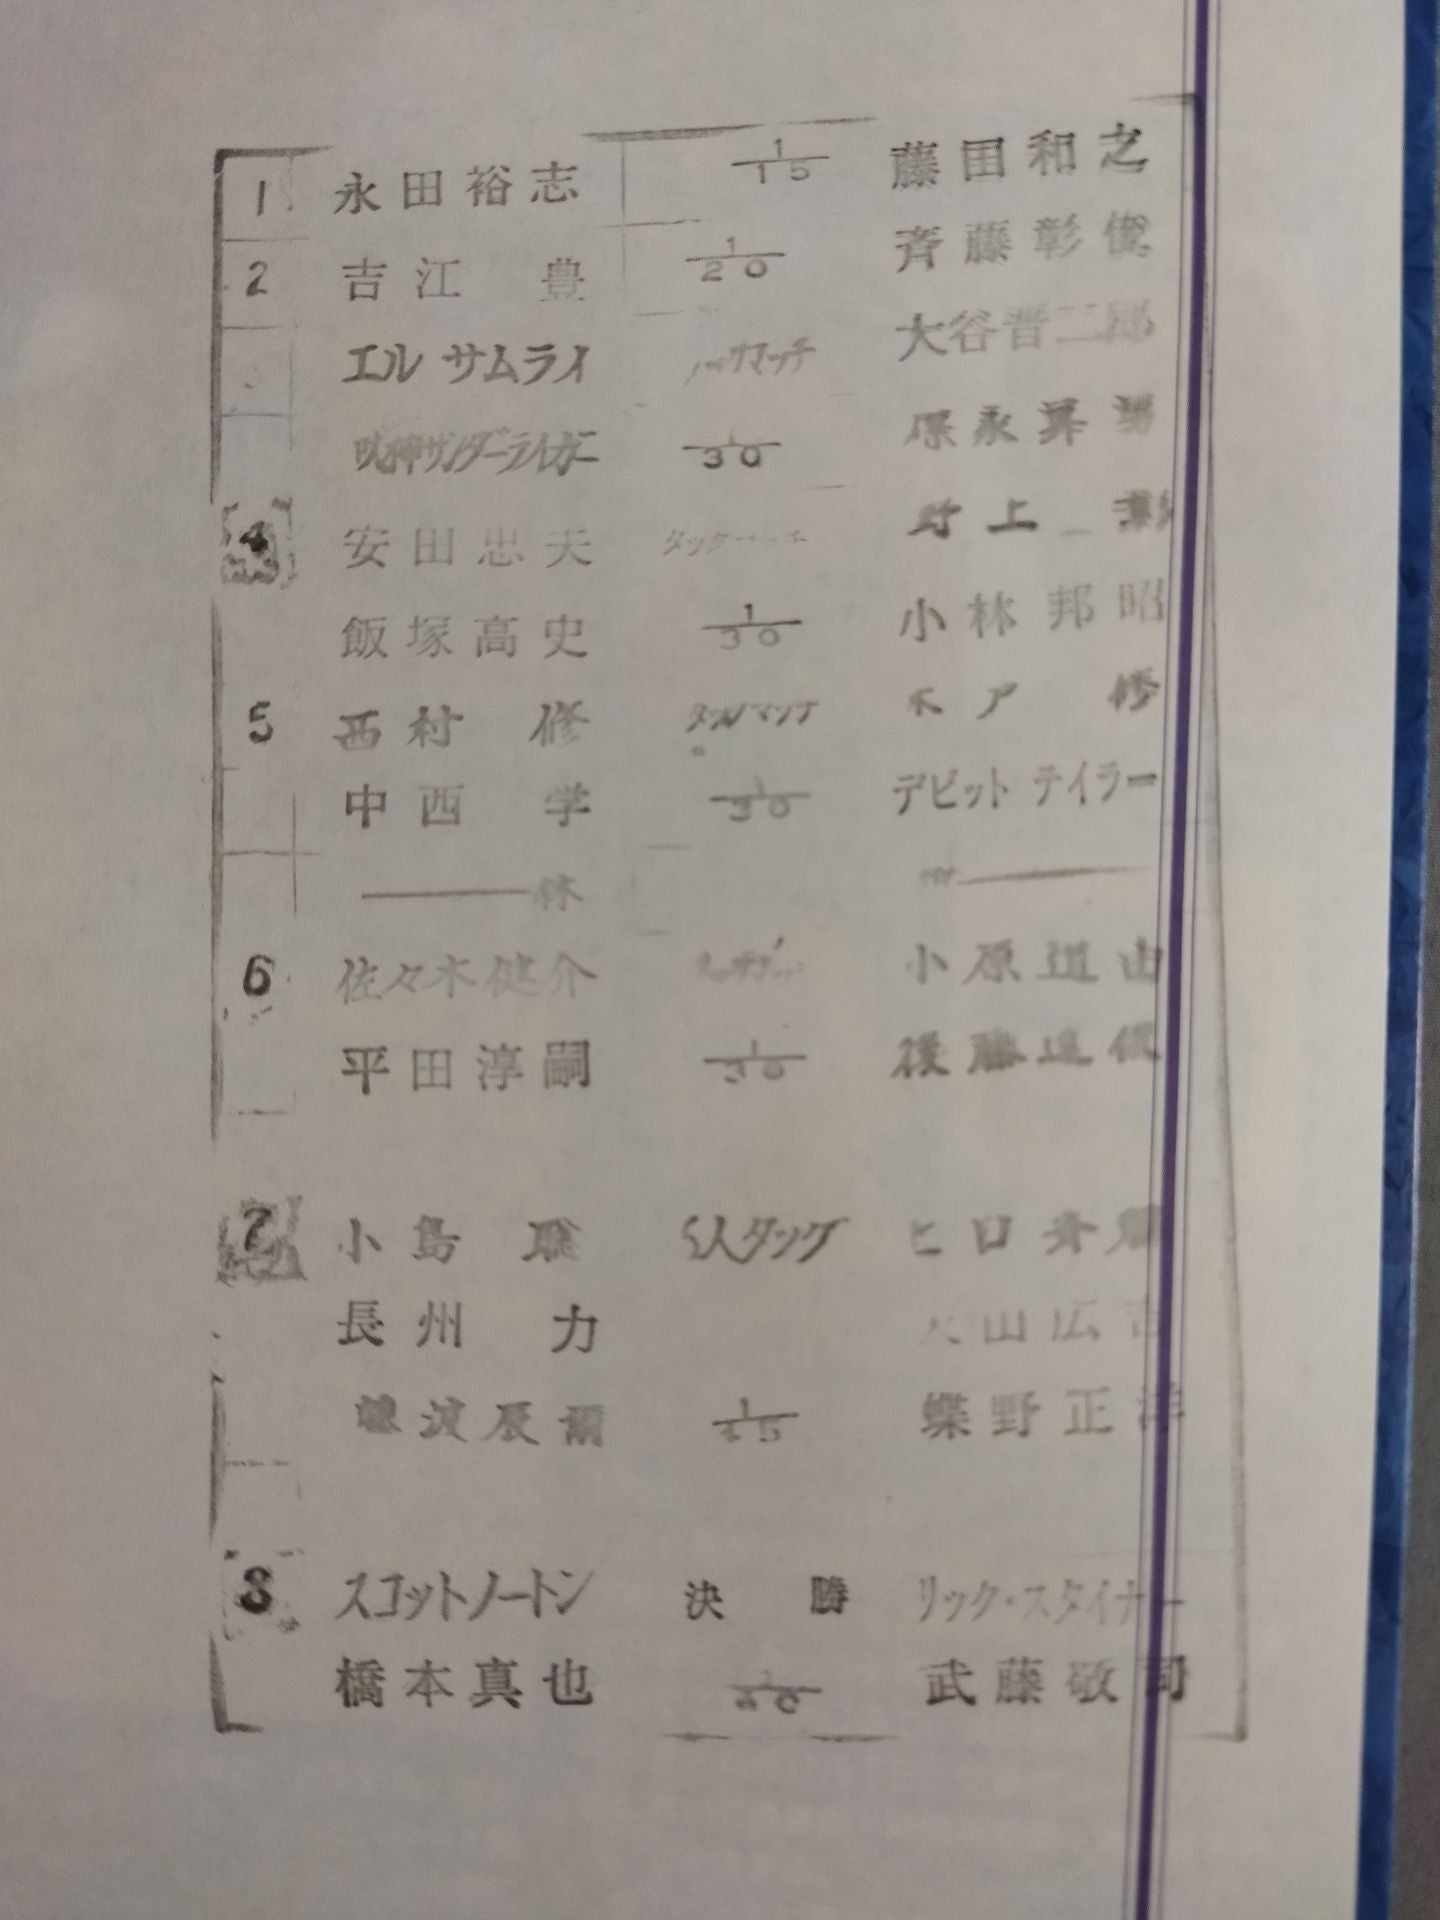 1 永田裕志 1/15 藤田和之
2 吉江 豊 1/20 斉藤彰俊
エル サムライ タッグマッチ 大谷晋二郎
獣神サンダーライガー 1/30 保永昇男
4 安田忠夫 タッグ 野上 彰
飯塚高史 1/30 小林邦昭
5 西村 修 タッグマッチ 木戸 修
中西 学 1/30 デビット テイラー
休 憩
6 佐々木健介 小原道由
平田淳嗣 1/30 後藤達俊
7 小島 聡 6人タッグ ヒロ斉藤
長州 力 天山広吉
藤波辰爾 1/45 蝶野正洋
8 スコットノートン 決 勝 リック・スタイナー
橋本真也 武藤敬司